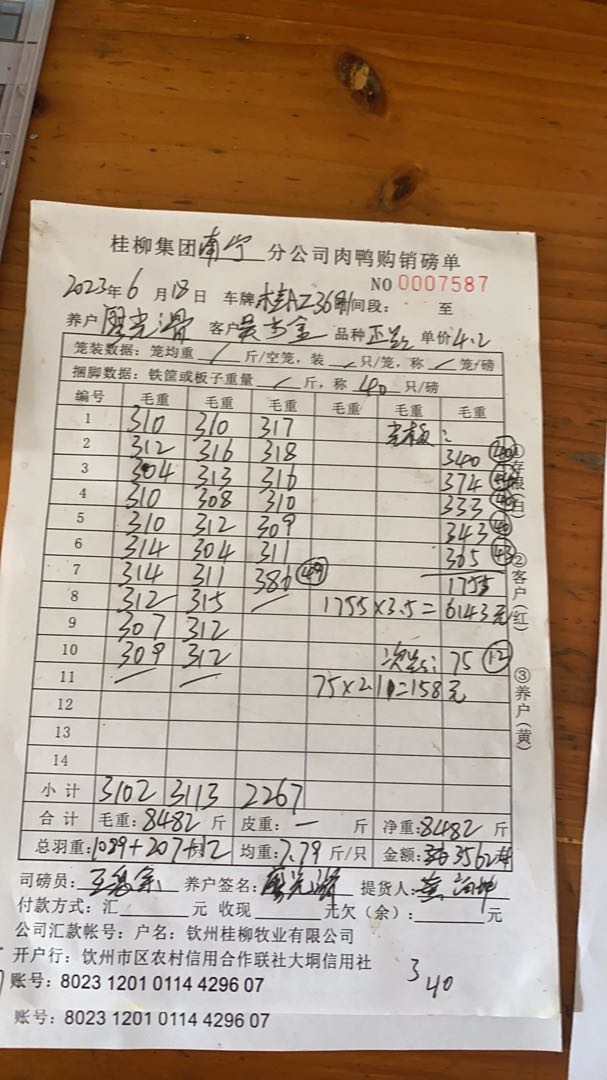 桂柳集团南宁分公司肉鸭购销磅单
NO 0007587
2023年6月18日 车牌桂AZ369 时间段: 至
养户 光 客户吴 金 品种正 单价4.2
笼装数据: 笼均重 / 斤/空笼, 装 / 只/笼, 称 / 笼/磅
捆脚数据: 铁筐或板子重量 / 斤, 称 40 只/磅
编号 毛重 毛重 毛重 毛重 毛重 毛重
1 310 310 317 :
2 312 316 318 340
3 304 313 316 374
4 310 308 310 333
5 310 312 309 343 40
6 314 304 311 305 43
7 314 311 386 49 1755
8 312 315 / 1755×3.5=6143元
9 307 312
10 309 312 次 : 75 12
11 / / 75×2.1=158元
12
13
14
小计 3102 3113 2267
合计 毛重:8482斤 皮重:— 斤 净重:8482斤
总羽重:1089+207+12 均重:7.79斤/只 金额:35624
司磅员: 养户签名: 光 提货人:黄
付款方式: 汇 元 收现 元欠(余): 元
公司汇款帐号: 户名: 钦州桂柳牧业有限公司
开户行: 钦州市区农村信用合作联社大垌信用社
账号: 8023 1201 0114 4296 07
340
账号: 8023 1201 0114 4296 07
①存根(白)
②客户(红)
③养户(黄)